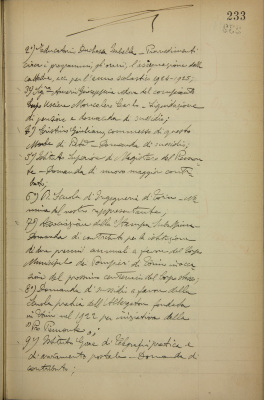 233
2°) Educatorio Duchessa Isabella - Provvedimenti
circa i programmi, gli orari, l'assegnazione delle
cattedre, ecc. per l'anno scolastico 1924-1925;
3°) Sig.ra Giuseppina ved. del compianto
Usciere Carlo - Liquidazione
di pensione e domanda di sussidio;
4°) Giuliano, commesso di questo
Monte di - Domanda di sussidio;
5°) Istituto Superiore di Magistero del Piemonte
- Domanda di nuovo maggior contributo;
6°) R. Scuola di Ingegneria di Torino - Nomina
del nostro rappresentante;
7°) Associazione della Stampa Subalpina
Domanda di contributo per la dotazione
di due premi annuali a favore del Corpo
Municipale dei Pompieri di Torino in occasione
del prossimo centenario del Corpo stesso;
8°) Domanda di sussidio a favore della
Scuola pratica dell' fondata
in Torino nel 1922 per iniziativa della
"Pro Piemonte";
9°) Istituto di pratica e
di avviamento - Domanda di
contributo;